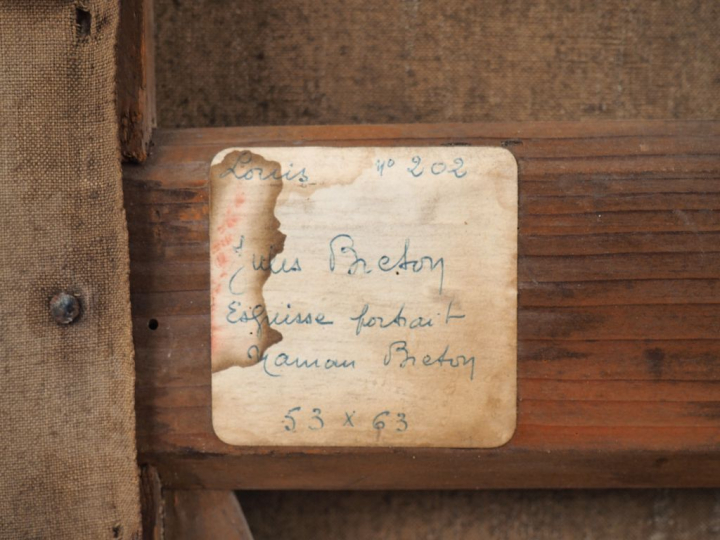 Louis nº 202
Jules Breton
Esquisse portrait
Maman Breton
53 x 63